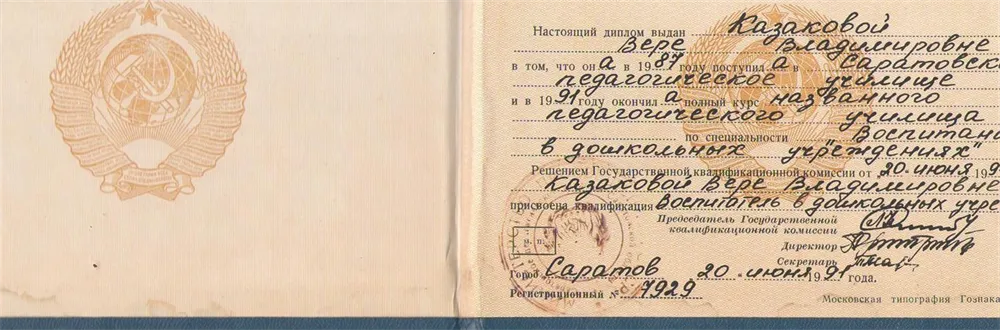 Настоящий диплом выдан Казаковой
Вере Владимировне
в том, что она в 1987 году поступила в Саратовск
педагогическое училище
и в 1991 году окончила полный курс названного
педагогического училища
по специальности "Воспитан
в дошкольных учреждениях"
Решением Государственной квалификационной комиссии от 20 июня 199
Казаковой Вере Владимировне
присвоена квалификация Воспитатель в дошкольных учре
Председатель Государственной
квалификационной комиссии
Директор
Секретарь
М. П.
Город Саратов 20 июня 1991 года.
Регистрационный № 7929
Московская типография Гознака